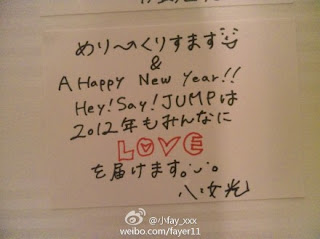 めり〜のくりすます
&
A Happy New Year!!
Hey! Say! JUMPは
2012年もみんなに
LOVE
を届けます。
八乙女光
@小fay_xxx
weibo.com/fayer11